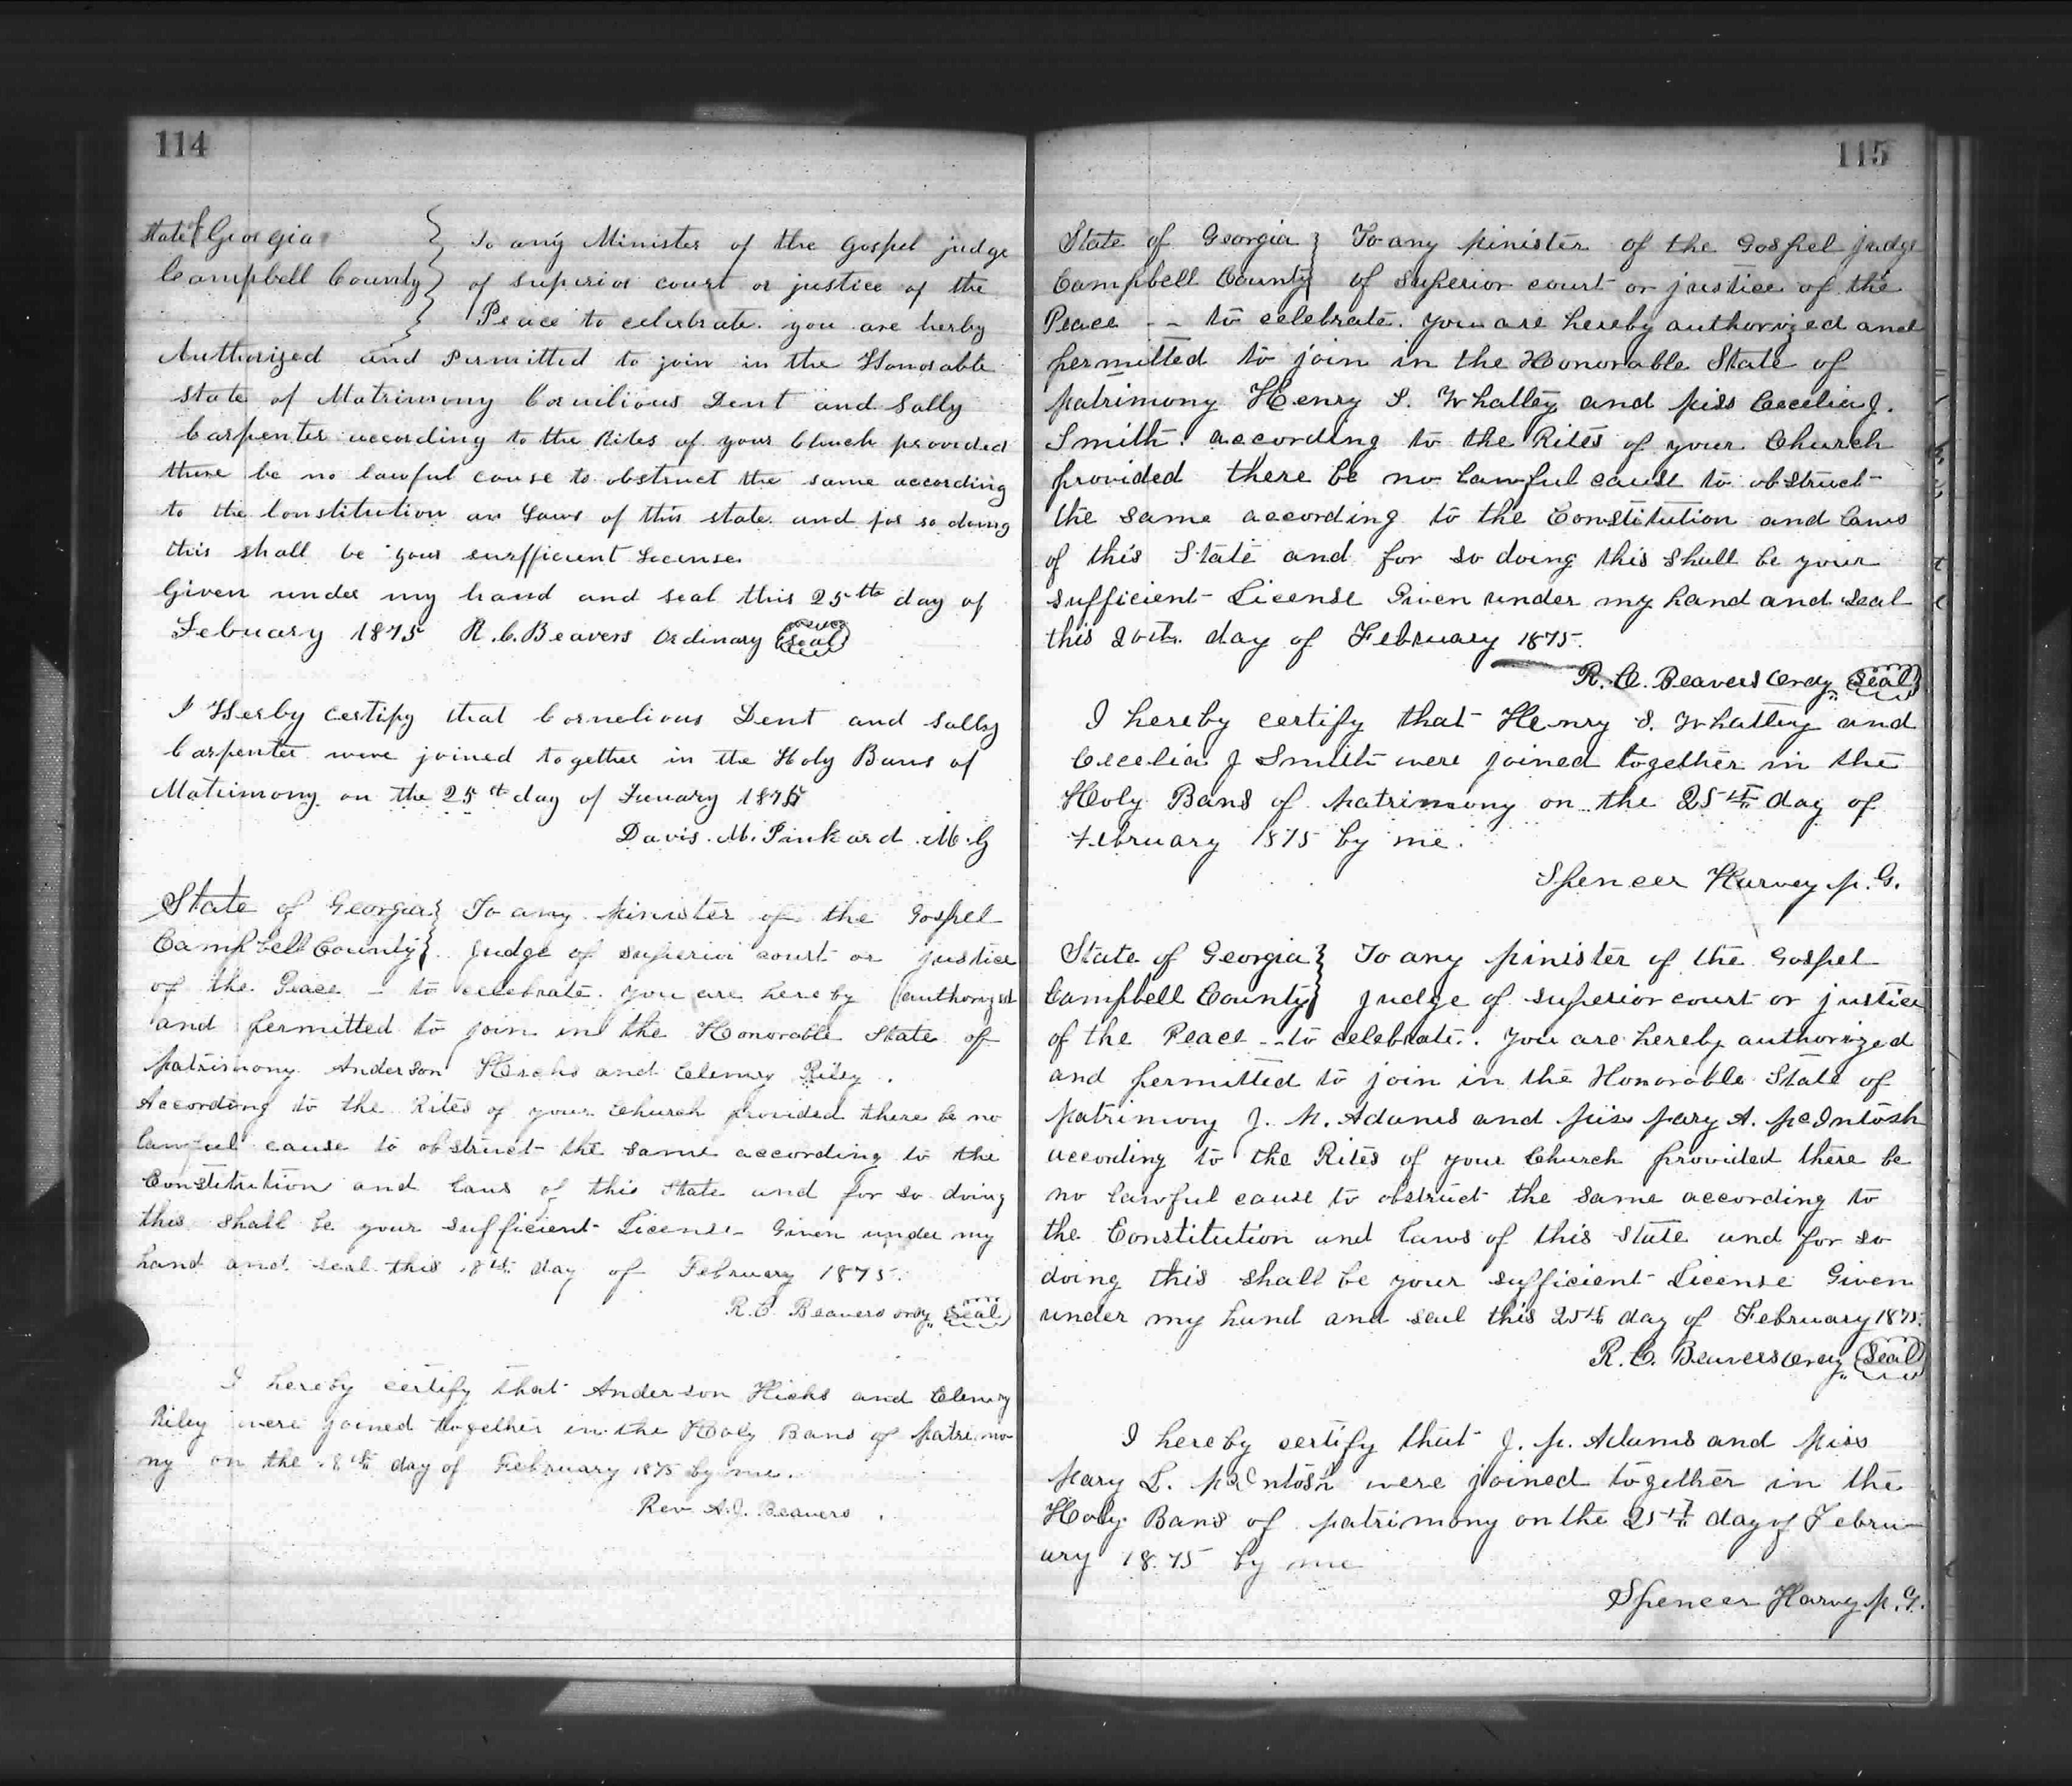 114
State of Georgia } To any Minister of the Gospel judge
Campbell County } of superior court or justice of the
Peace to celebrate. you are herby
Authorized and Permitted to join in the Honorable
state of Matrimony Cornilious Dent and Sally
Carpenter according to the Rites of your Church provided
there be no lawful cause to obstruct the same according
to the Constitution an Laws of this state. and for so doing
this shall be your surfficient License.
Given under my hand and seal this 25th day of
Febuary 1875 R. C. Beavers Ordinary (Seal)
I Herby certify that Cornelious Dent and Sally
Carpenter were joined together in the Holy Bans of
Matrimony on the 25st day of Funuary 1875
Davis. M. Pinkard. M.G
State of Georgia } To any Minister of the Gospel
Campbell County } Judge of superior court or justice
of the Peace - to celebrate. you are hereby authorized
and permitted to join in the Honorable State of
Matrimony Anderson Hicks and Clemey Riley.
According to the Rites of your Church provided there be no
lawful cause to obstruct the same according to the
Constitution and laws of this State and for so doing
this shall be your sufficient License Given under my
hand and seal this 18th day of February 1875.
R. C. Beavers ordy. (Seal)
I hereby certify that Anderson Hicks and Clemey
Riley were joined together in the Holy Bans of Matrimo
ny on the 18th day of February 1875 by me.
Rev A.J. Beavers.
115
State of Georgia } To any Minister of the Gospel Judge
Campbell County } of Superior court or justice of the
Peace - - to celebrate. you are hereby authorized and
permitted to join in the Honorable State of
Matrimony Henry S. Whatley and Miss Cecelia J.
Smith. according to the Rites of your Church
provided there be no lawful cause to obstruct
the same according to the Constitution and laws
of this State and for so doing this shall be your
sufficient License Given under my hand and seal
this 20th. day of February 1875.
R. C. Beavers Ordy. (Seal)
I hereby certify that Henry S. Whatley and
Cecelia J Smith were joined together in the
Holy Bans of Matrimony on the 25th day of
February 1875 by me.
Spencer Harvey M. G.
State of Georgia } To any Minister of the Gospel
Campbell County } Judge of superior court or justice
of the Peace - - to celebrate. You are hereby authorized
and permitted to join in the Honorable State of
Matrimony J. M. Adams and Miss Mary A. McIntosh
according to the Rites of your Church provided there be
no lawful cause to obstruct the same according to
the Constitution and laws of this State and for so
doing this shall be your sufficient License Given
under my hand and seal this 25th day of February 1875.
R. C. Beavers Ordy. (Seal)
I hereby certify that J. M. Adams and Miss
Mary L. McIntosh were joined together in the
Holy Bans of Matrimony on the 25th day of Febru-
ary 1875 by me
Spencer Harvy M. G.